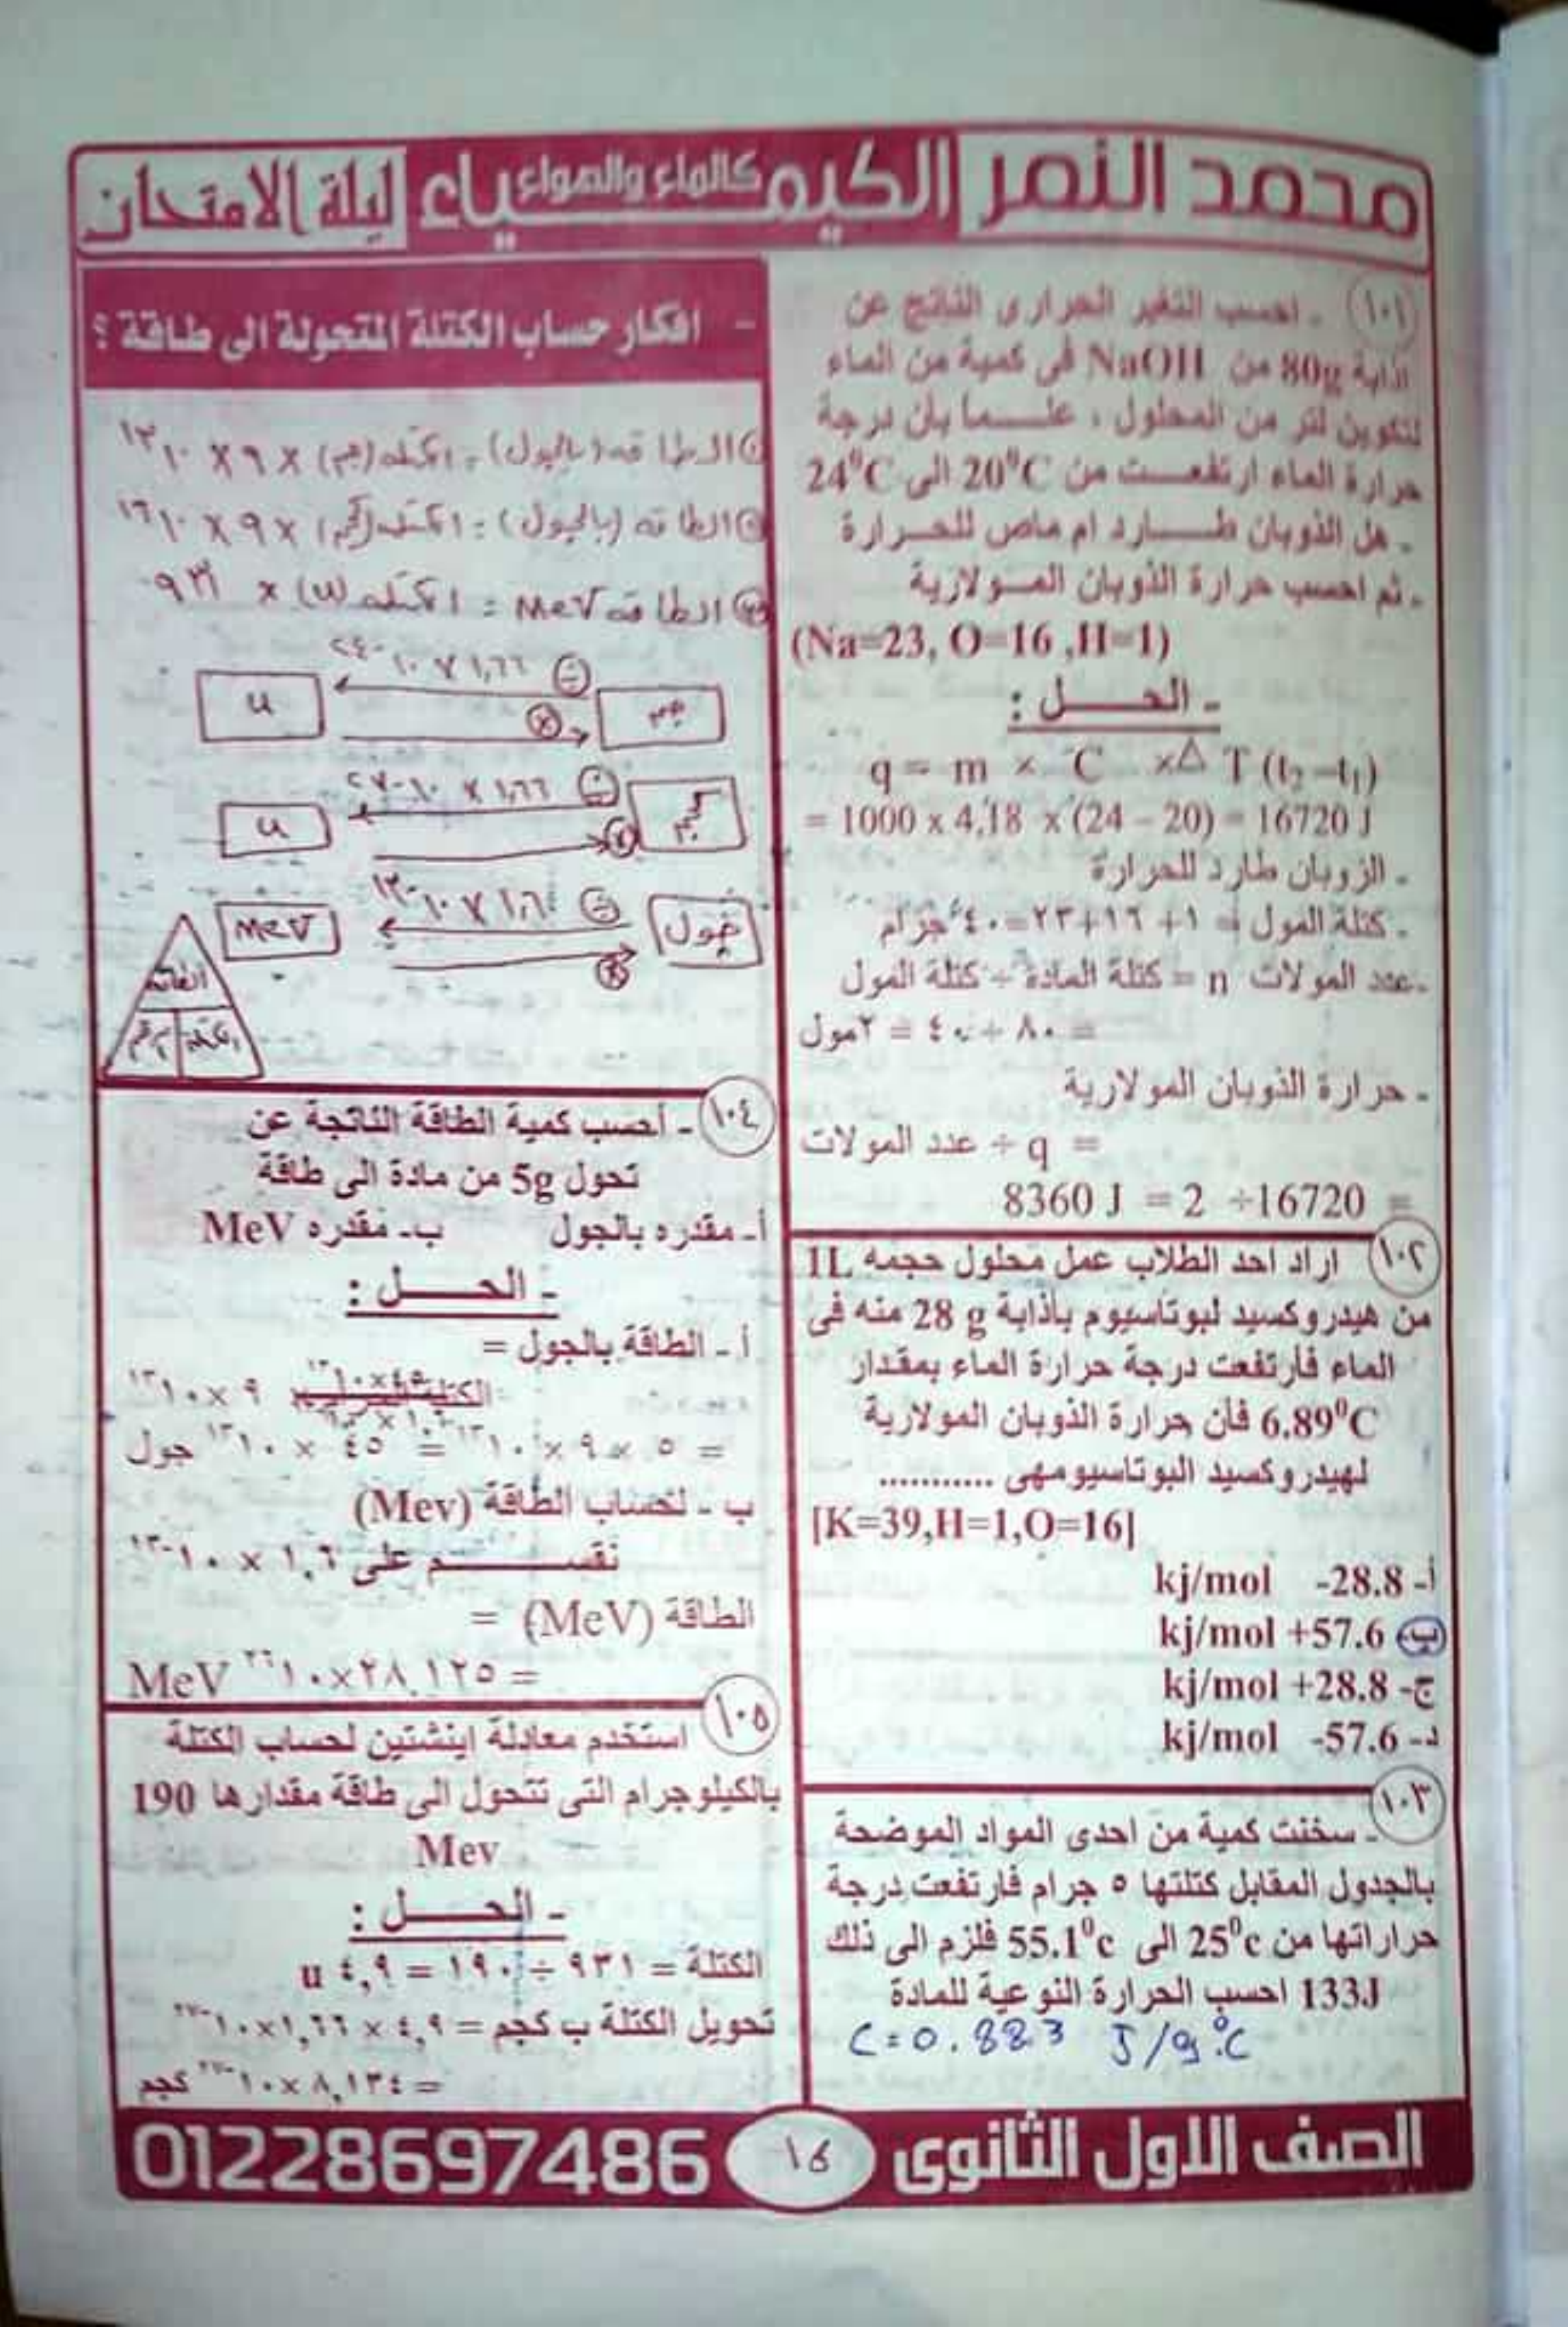 محمد النمر الكيمياء كالماء والهواء ليلة الامتحان
١٠١ - احسب التغير الحرارى الناتج عن
اذابة 80g من NaOH فى كمية من الماء
لتكوين لتر من المحلول ، علما بأن درجة
حرارة الماء ارتفعت من 20⁰C الى 24⁰C
- هل الذوبان طارد ام ماص للحرارة
- ثم احسب حرارة الذوبان المولارية
(Na=23, O=16 ,H=1)
- الحل :
q = m × C ×△ T (t₂–t₁)
= 1000 x 4,18 x (24 – 20) = 16720 J
- الزوبان طارد للحرارة
- كتلة المول = ١+ ١٦+٢٣=٤٠ جرام
-عدد المولات n = كتلة المادة ÷ كتلة المول
= ٨٠ ÷ ٤٠ = ٢مول
- حرارة الذوبان المولارية
= q ÷ عدد المولات
= 16720÷ 2 = 8360 J
١٠٢ اراد احد الطلاب عمل محلول حجمه 1L
من هيدروكسيد لبوتاسيوم بأذابة 28 g منه فى
الماء فأرتفعت درجة حرارة الماء بمقدار
6.89⁰C فأن حرارة الذوبان المولارية
لهيدروكسيد البوتاسيومهى ...........
[K=39,H=1,O=16]
أ- 28.8- kj/mol
ب- 57.6+ kj/mol
ج- 28.8+ kj/mol
د- 57.6- kj/mol
١٠٣ - سخنت كمية من احدى المواد الموضحة
بالجدول المقابل كتلتها ٥ جرام فارتفعت درجة
حراراتها من 25⁰c الى 55.1⁰c فلزم الى ذلك
133J احسب الحرارة النوعية للمادة
C = 0.883 J/g.°C
- افكار حساب الكتلة المتحولة الى طاقة ؟
① الطاقه (بالجول) = الكتله (جم) × ٩ × ١٠ ¹³
② الطاقه (بالجول) = الكتله (كجم) × ٩ × ١٠ ¹⁶
③ الطاقه MeV = الكتله (u) × ٩٣١
÷ ١,٦٦ × ١٠ ⁻²⁴
u جم
×
÷ ١,٦٦ × ١٠ ⁻²⁷
u كجم
×
÷ ١,٦ × ١٠ ⁻¹³
MeV جول
×
الطاقة
الكتلة
١٠٤ - أحسب كمية الطاقة الناتجة عن
تحول 5g من مادة الى طاقة
أ- مقدره بالجول ب- مقدره MeV
- الحل :
أ - الطاقة بالجول =
٩ ×١٠ ¹³
= ٥ × ٩ × ١٠ ¹³ = ٤٥ × ١٠ ¹³ جول
ب - لحساب الطاقة (Mev)
نقسم على ١,٦ × ١٠ ⁻¹³
الطاقة (MeV) =
= ٢٨,١٢٥×١٠ ²⁶ MeV
١٠٥ استخدم معادلة اينشتين لحساب الكتلة
بالكيلوجرام التى تتحول الى طاقة مقدارها 190
Mev
- الحل :
الكتلة = ٩٣١ ÷ ١٩٠ = ٤,٩ u
تحويل الكتلة ب كجم = ٤,٩ × ١,٦٦×١٠ ⁻²⁷
= ٨,١٣٤ ×١٠ ⁻²⁷ كجم
الصف الاول الثانوى ١٦ 01228697486